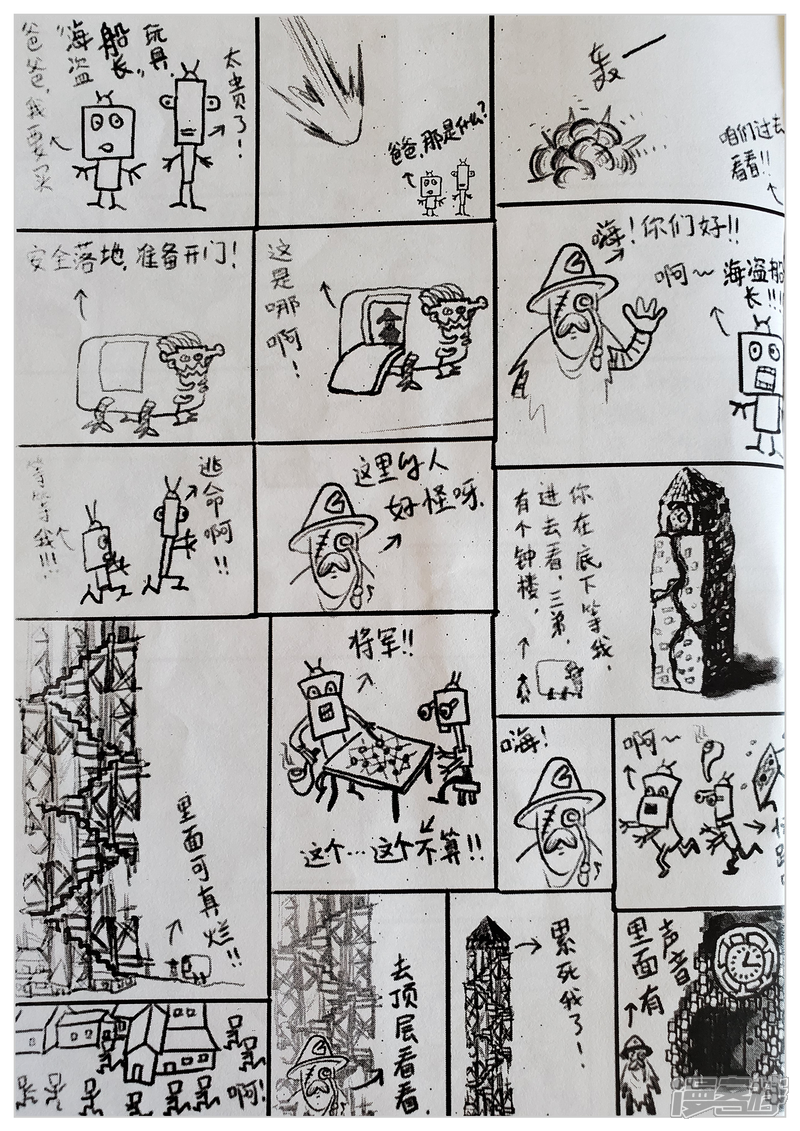 爸爸,我要买
"海盗
船长"
玩具.
太贵了!
爸爸,那是什么?
轰
咱们过去
看看!!
安全落地,准备开门!
这是哪啊!
嗨!你们好!!
啊~海盗船
长!!!
等等我!!!
逃命啊!!
这里的人
好怪呀.
有个钟楼,
进去看,三弟,
你在底下等我,
里面可真烂!!
将军!!
这个…这个不算!!
嗨!
啊~
啊!
去顶层看看.
累死我了!
里面有
声音
漫客栈